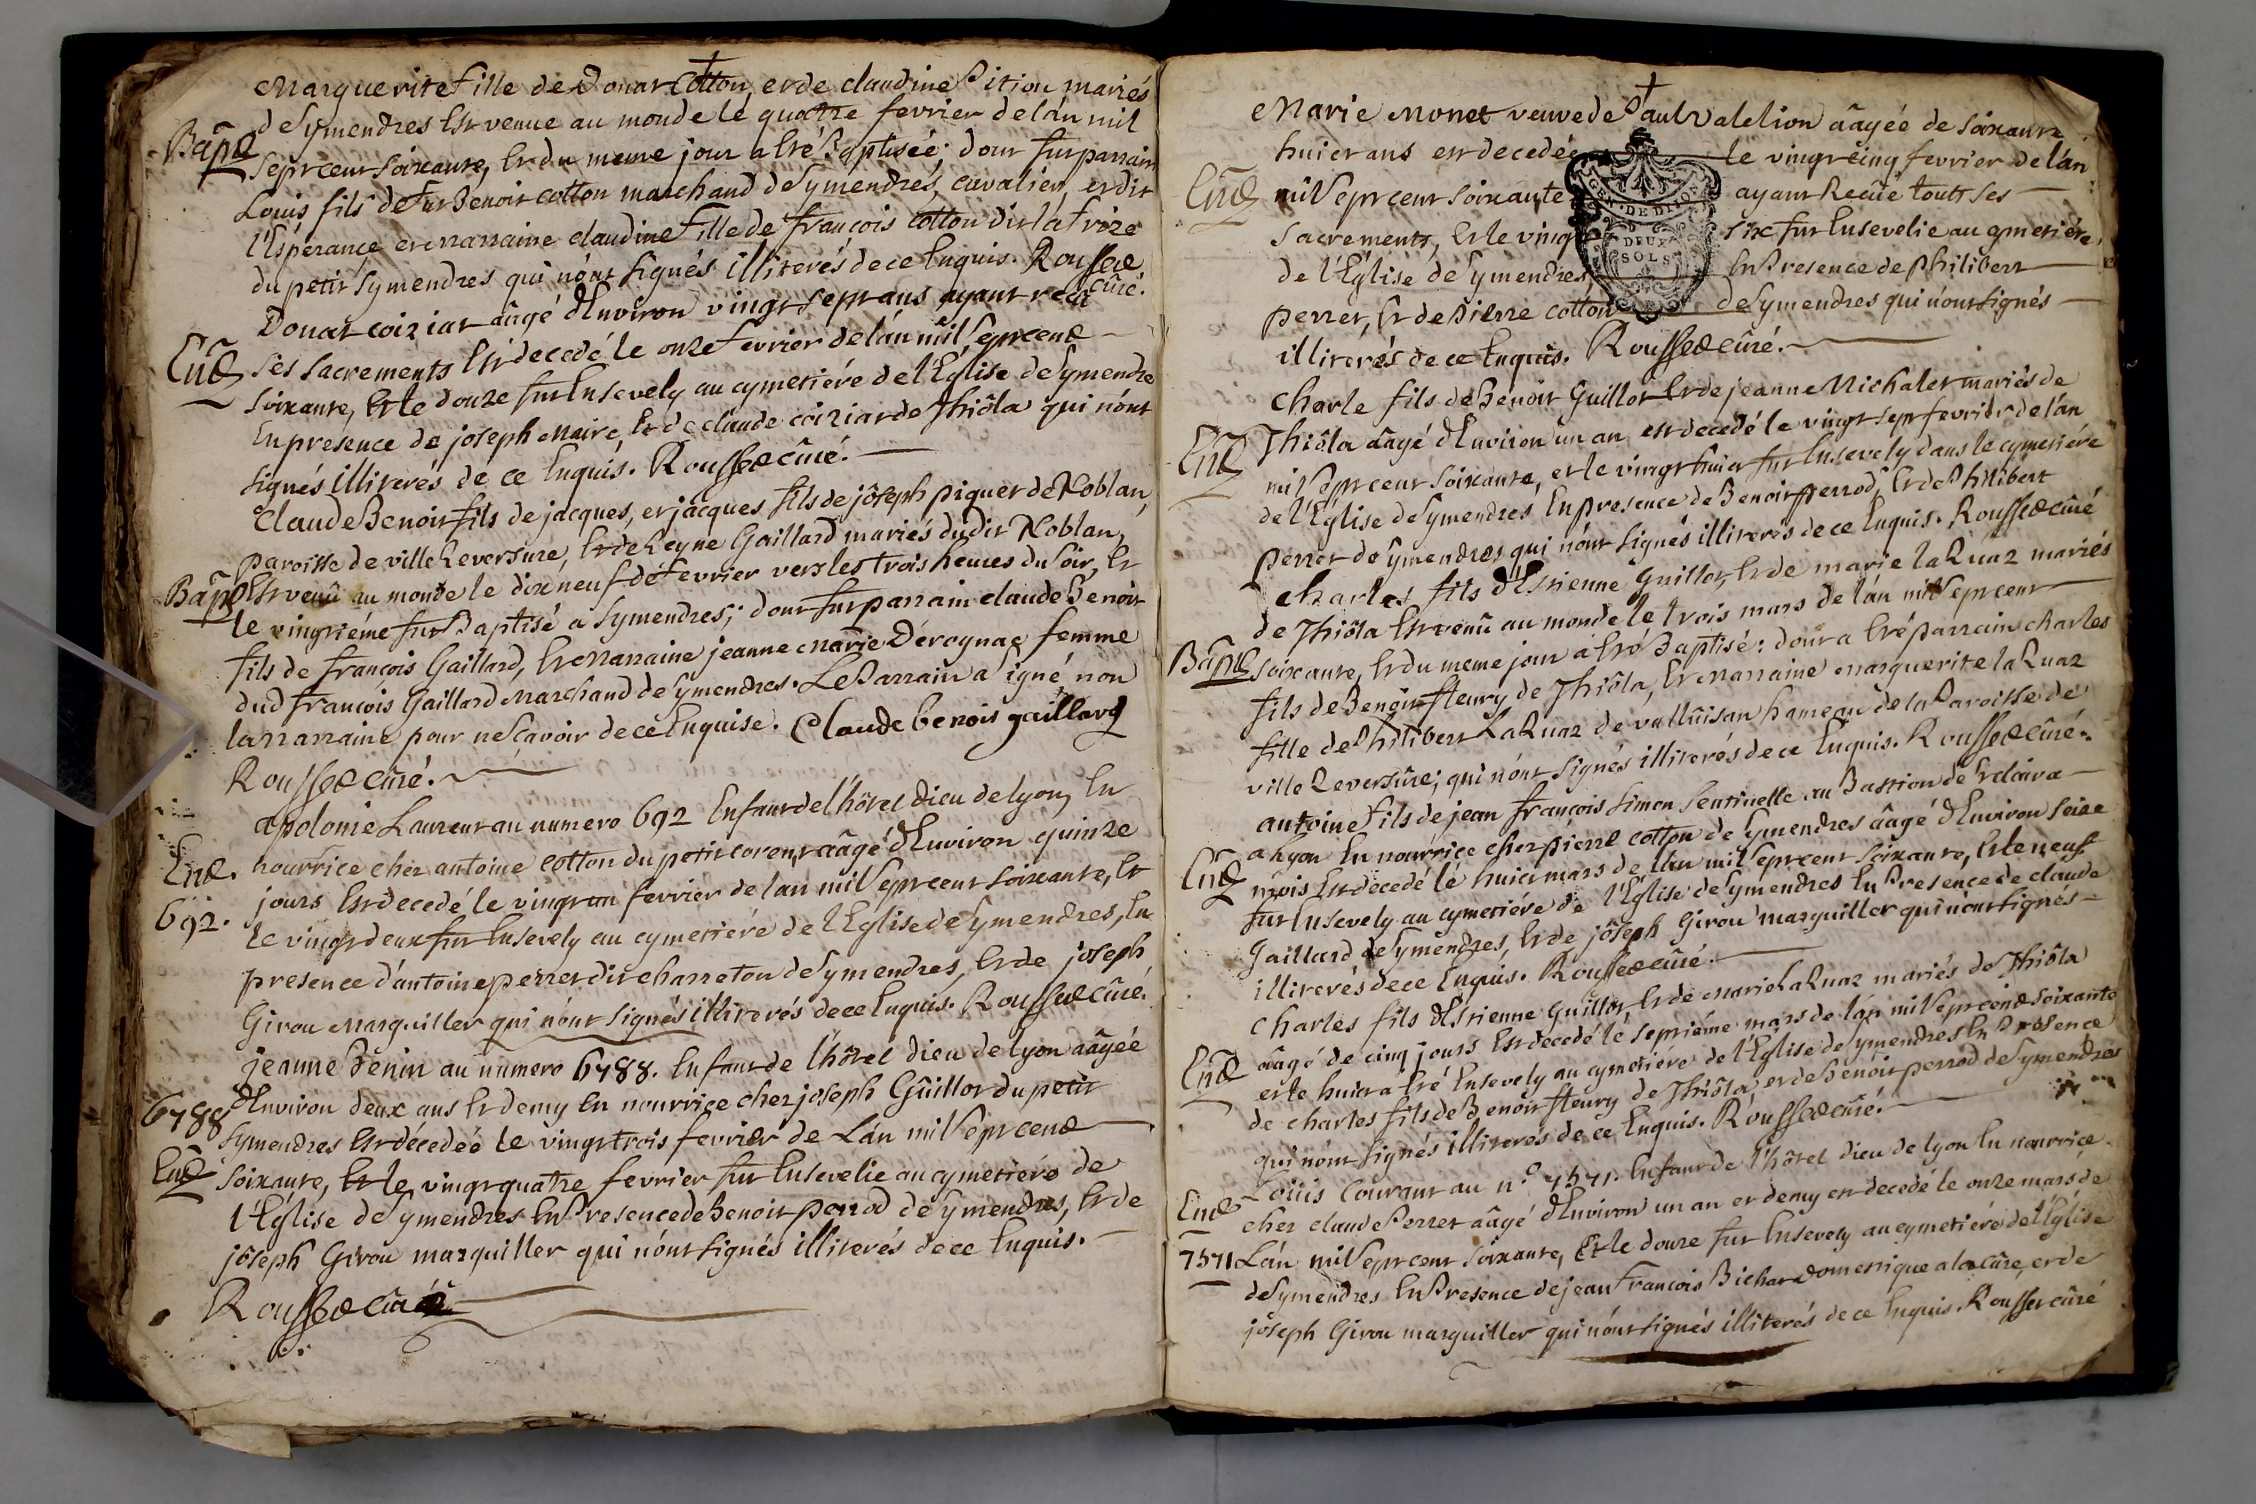 Marguerite fille de Donat Cotton, et de claudine Pition mariés
de Symendres Est venue au monde le quatre fevrier de lán mil
Bapt Sept cent soixante, Et du meme jour a Eté Baptisée; dont fut parrain
Louis fils de fut Benoit cotton marchand de Symendres, cavalier, et dit
l'Esperance, et marraine claudine fille de françois Cotton dit la frize
du petit Symendres qui nónt signés illiterés de ce Enquis. Rousset
curé.
Donat coiziat âagé d'Environ vingt sept ans ayant reçû
Ent ses sacrements Est decedé le onze fevrier de lán mil sept cent
soixante, Et le douze fut Ensevely au cymetiére de l'Église de Symendre
En presence de joseph Maire, Et de claude coiziat de Thiôla qui nónt
signés illiterés de ce Enquis. Rousset curé.
Claude Benoit fils de jacques, et jacques fils de jôseph piquet de Roblan,
paroisse de ville Reversure, Et de Reyne Gaillard mariés dudit Roblan,
Bapt Est venû au monde le dix neuf de fevrier vers les trois heures du soir, Et
le vingtiéme fut Baptisé a Symendres; dont fut parrain claude Benoit
fils de françois Gaillard, Et Marraine jeanne Marie Derognac femme
dud françois Gaillard Marchand de Symendres. Le Parrain a signé non
la Marraine pour ne sçavoir de ce Enquise. Claude benois gaillard
Rousset curé.
apolonie Laurent au numero 692 Enfant de l'hôtel Dieu de lyon, En
Ent. nourrice chez antoine cotton du petit corent âagé d'Environ quinze
692. jours Est decedé le vingt un fevrier de lan mil sept cent soixante, Et
le vingt deux fut Ensevely au cymetiére de l'Église de Symendres, En
presence d'antoine perret dit charreton de Symendres, Et de joseph
Girou Marguiller qui nónt signés illiterés de ce Enquis. Rousset curé.
jeanne Benin au numero 6788. Enfant de l'hôtel Dieu de lyon âagéé
6788 d'Environ deux ans Et demy En nourrice chez joseph Guillot du petit
Symendres Est décedéé le vingt trois fevrier de Lán mil sept cent
Ent soixante, Et le vingt quatre fevrier fut Ensevelie au cymetiére de
l'Église de Symendres En Presence de Benoit perrod de Symendres, Et de
jôseph Girou marguiller qui nónt signés illiterés de ce Enquis.
Rousset curé
Marie Monet veuve de Paul Valelion âagéé de soixante
huict ans est decedéé le vingt cinq fevrier de lán
Ent mil sept cent soixante ayant Recûë touts ses
sacrements, Et le vingt six fut Ensevelie au cymetiére
de l'Église de Symendres, En Presence de Philibert
perret, Et de Pierre cotton de Symendres qui nónt signés
illiterés de ce Enquis. Rousset curé.
GEN. DE DIJON
DEUX
SOLS
charle fils de Benoit Guillot Et de jeanne Michalet mariés de
Ent Thiôla âagé d'Environ un an est decedé le vingt sept fevrier de lán
mil sept cent soixante, et le vingt huict fut Ensevely dans le cymetiére
de l'Église de Symendres En presence de Benoit perrod, Et de Philibert
perret de Symendres qui nónt signés illiterés de ce Enquis. Rousset curé
charles fils d'Estienne Guillot, Et de marie la Ruaz mariés
de Thiôla Est venû au monde le trois mars de lán mil sept cent
Bapt soixante, Et du meme jour a Eté Baptisé: dont a Eté parrain charles
fils de Benoit fleury de Thiôla, Et Marraine marguerite la Ruaz
fille de Philibert La Ruaz de vallûisan hameau de la Paroisse de
ville Reversûre; qui nónt signés illiterés de ce Enquis. Rousset curé.
antoine fils de jean françois simon sentinelle au Bastion de St claire
a Lyon En nourrice chez pierre cotton de Symendres âagé d'Environ seize
Ent mois Est decedé le huict mars de lán mil sept cent soixante, Et le neuf
fut Ensevely au cymetiére de l'Église de Symendres En Presence de claude
Gaillard de Symendres, Et de jôseph Girou marguiller qui nónt signés
illiterés de ce Enquis. Rousset curé.
Charles fils d'Estienne Guillot, Et de Marie La Ruaz mariés de Thiôla
Ent âagé de cinq jours Est decedé le septiéme mars de lán mil sept cent soixante
et le huict a Eté Ensevely au cymetiére de l'Église de Symendres En Presence
de charles fils de Benoit fleury de Thiôla, et de Benoit perrod de Symendres
qui nónt signés illiterés de ce Enquis. Rousset curé.
Loüis Courant au n.° 7571. Enfant de l'hôtel dieu de lyon En nourrice
Ent chez claude Perret âagé d'Environ un an et demy est decedé le onze mars de
7571 Lán mil sept cent soixante, Et le douze fut Ensevely au cymetiére de l'Église
de Symendres En Presence de jean François Bichat domestique a la cûre, et de
jôseph Girou marguiller qui nónt signés illiterés de ce Enquis. Rousset curé